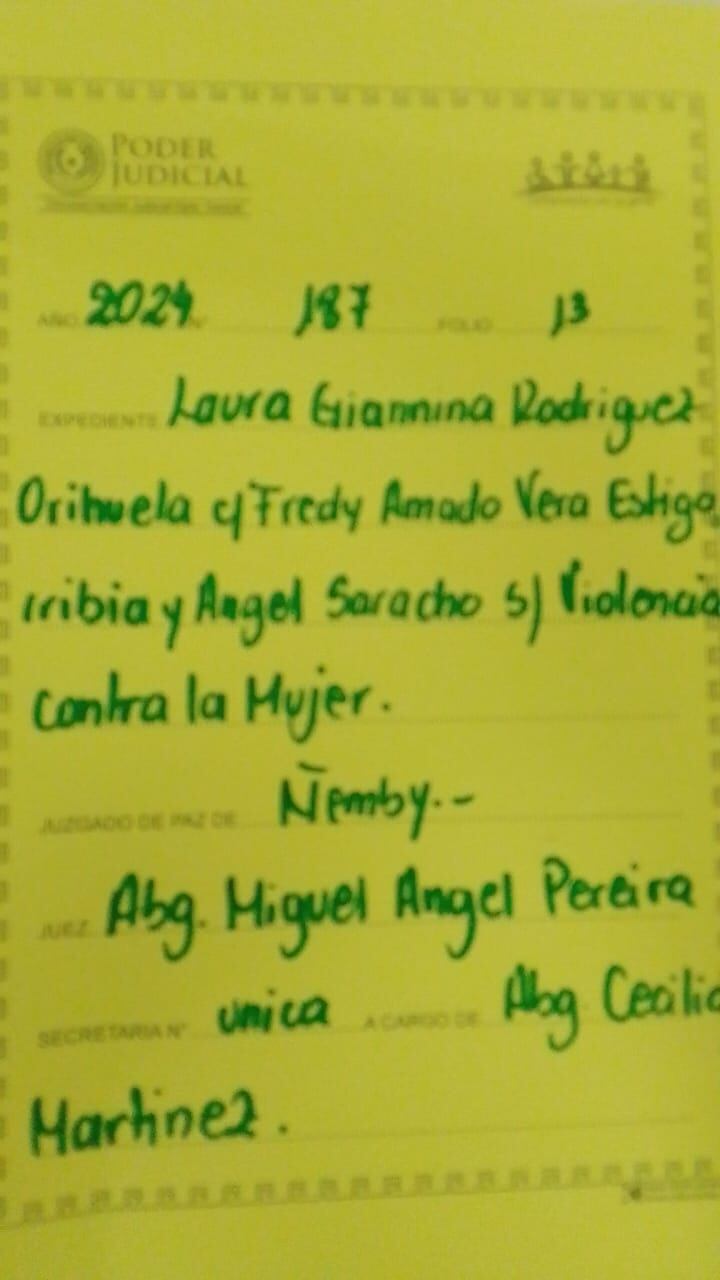 PODER
JUDICIAL
AÑO 2024 N° 187 FOLIO 13
EXPEDIENTE Laura Giannina Rodriguez
Orihuela c/ Fredy Amado Vera Estiga
rribia y Angel Saracho s) Violencia
contra la Mujer.
JUZGADO DE PAZ DE Ñemby.-
JUEZ Abg. Miguel Angel Pereira
SECRETARIA N° unica A CARGO DE Abg Cecilia
Martinez.